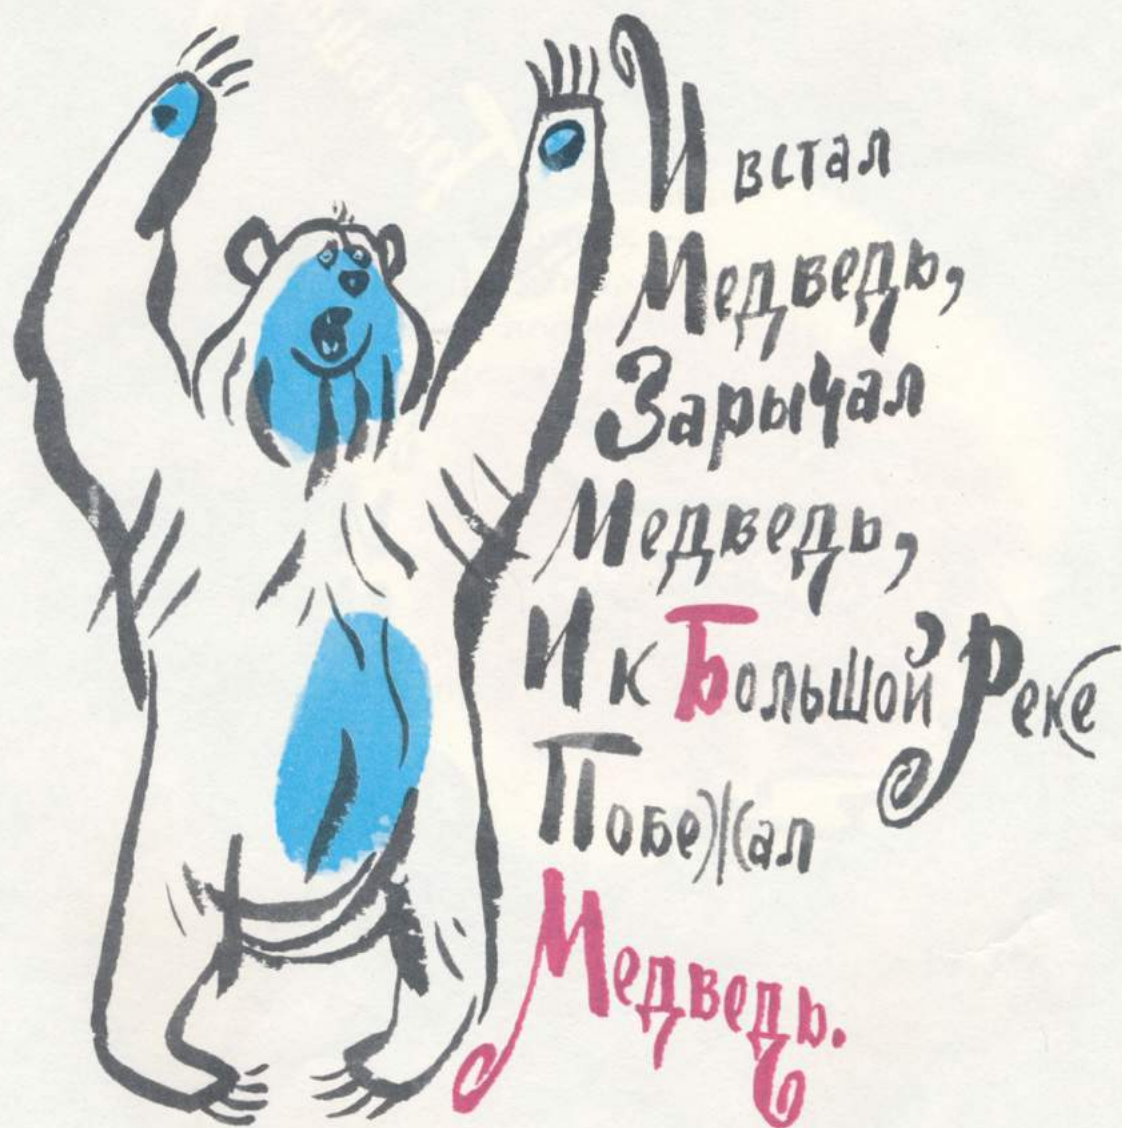 И встал
Медведь,
Зарычал
Медведь,
И к Большой Реке
Побежал
Медведь.